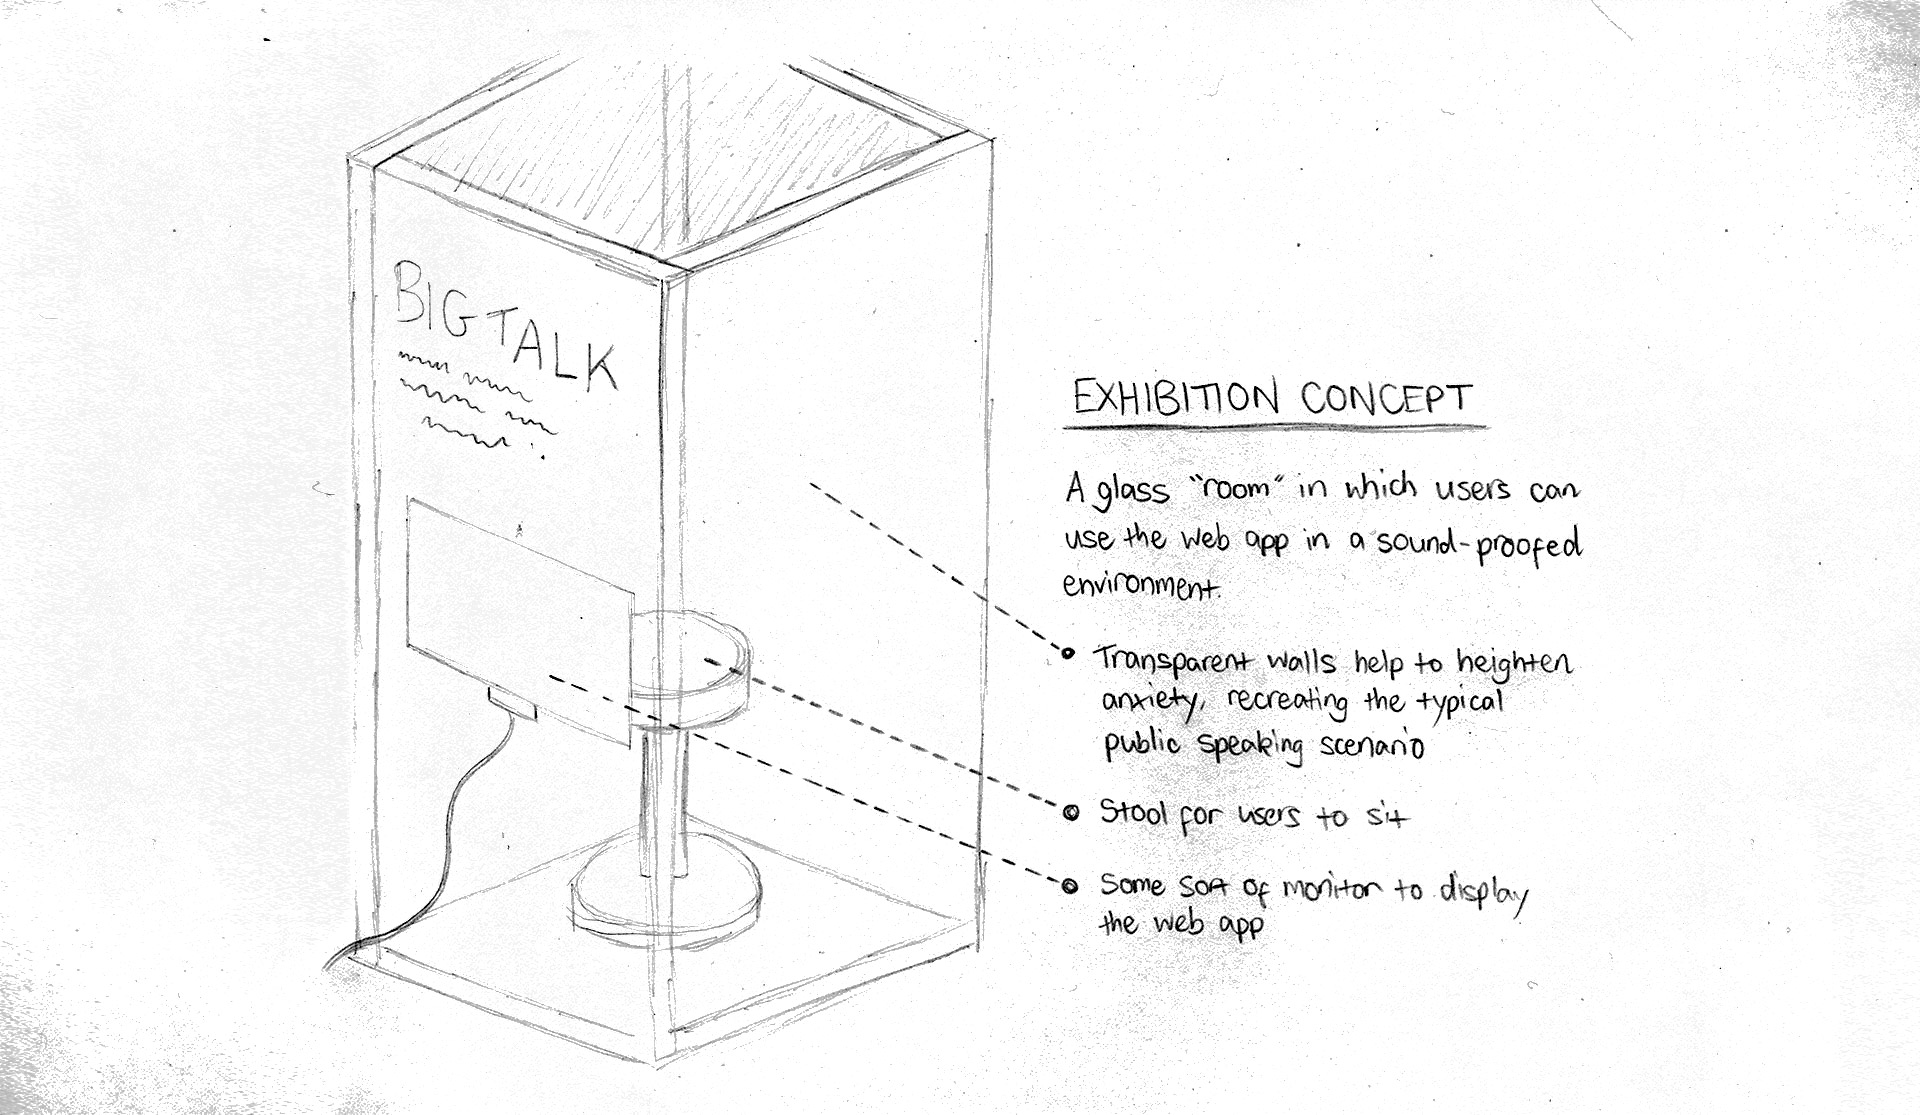 BIG TALK
EXHIBITION CONCEPT
A glass "room" in which users can
use the web app in a sound-proofed
environment.
Transparent walls help to heighten
anxiety, recreating the typical
public speaking scenario
Stool for users to sit
Some sort of monitor to display
the web app